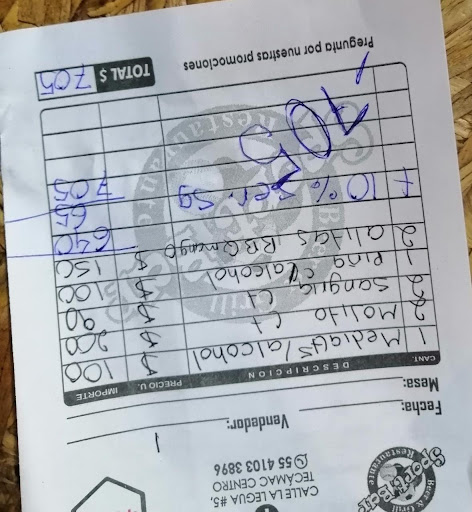 Sport Bar
Beer & Grill
Restaurante
CALLE LA LEGUA #5,
TECAMAC CENTRO
55 4103 3896
Fecha: Vendedor: 1
Mesa:
CANT. DESCRIPCION PRECIO U. IMPORTE
1 Media s/alcohol $ 100
2 Mojito ct $ 200
2 Sangria ct $ 90
1 Piña c/alcohol $ 100
2 alitas BBQ mango $ 150
640
65
+ 10% ser. 705
705
Pregunta por nuestras promociones
TOTAL $ 705